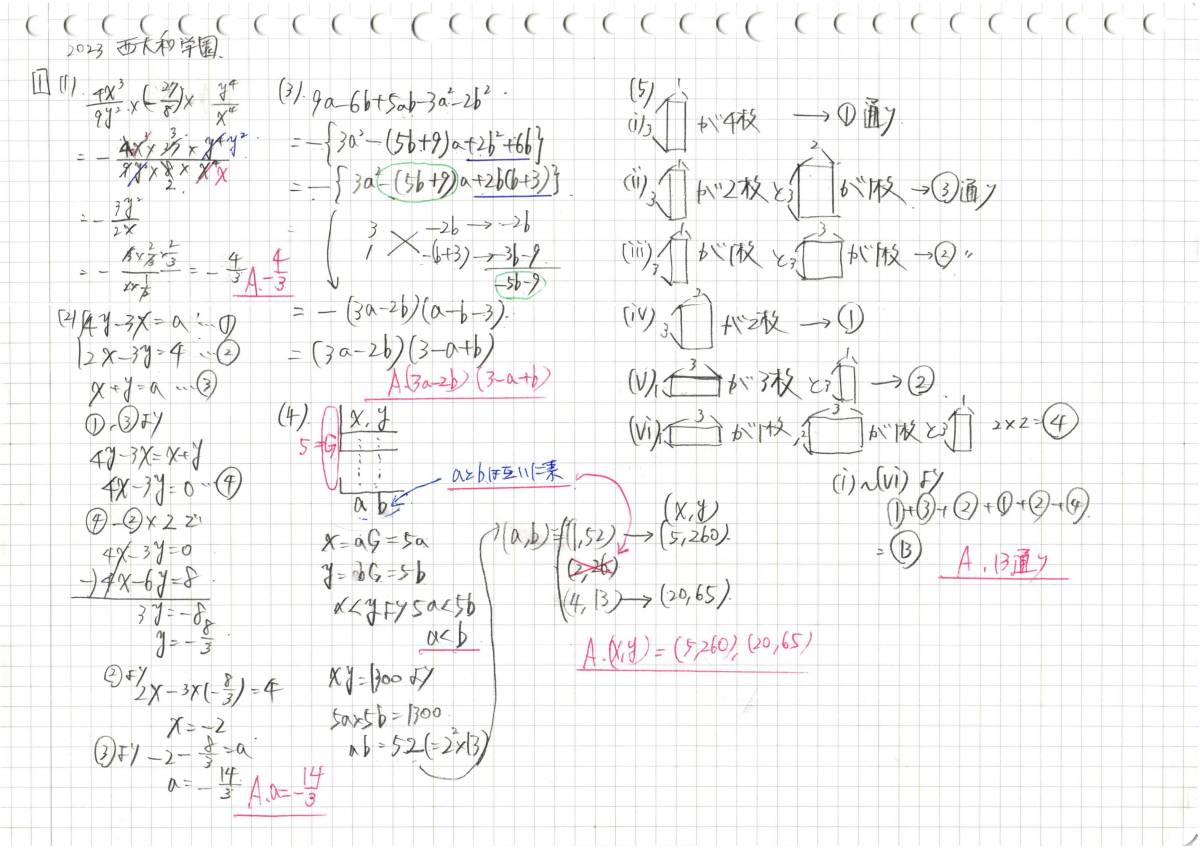 2023 西大和学園.
1 (1).
4x³/9y² × (-27/8) × y⁴/x⁴
= - 4x³ × 27 × y⁴ y² / 9y² × 8 × x⁴ x
3
2
= - 3y²/2x
= - 4/3
A. -4/3
(2) 4y-3x=a …①
2x-3y=4 …②
x+y=a …③
①,③より
4y-3x=x+y
4x-3y=0 …④
④-②×2で
4x-3y=0
-) 4x-6y=8
3y=-8
y=-8/3
②より
2x-3×(-8/3)=4
x=-2
③より -2-8/3=a
a=-14/3
A. a=-14/3
(3). 9a-6b+5ab-3a²-2b².
= -{3a²-(5b+9)a+2b²+6b}
= -{3a²-(5b+9)a+2b(b+3)}
3 -2b → -2b
1 -(b+3) → -3b-9
-5b-9
= -(3a-2b)(a-b-3).
= (3a-2b)(3-a+b)
A. (3a-2b)(3-a+b)
(4).
x, y
5=G
a b
aとbは互いに素
x=aG=5a
y=bG=5b
x<yより5a<5b
a<b
xy=1300より
5a×5b=1300
ab=52(=2²×13)
(x,y)
(a,b)= (1,52) → (5,260).
(2,26)
(4,13) → (20,65).
A. (x,y)=(5,260),(20,65)
(5)
(i) 3 1 が4枚 → ①通り
(ii) 3 1 が2枚と3 2 が1枚 → ③通り
(iii) 3 1 が1枚と3 3 が1枚 → ② 〃
(iv) 3 2 が2枚 → ①
(v) 1 3 が3枚と3 1 → ②
(vi) 1 3 が1枚, 2 3 が1枚と3 1 2×2=④
(i)~(vi)より
①+③+②+①+②+④
=⑬
A. 13通り